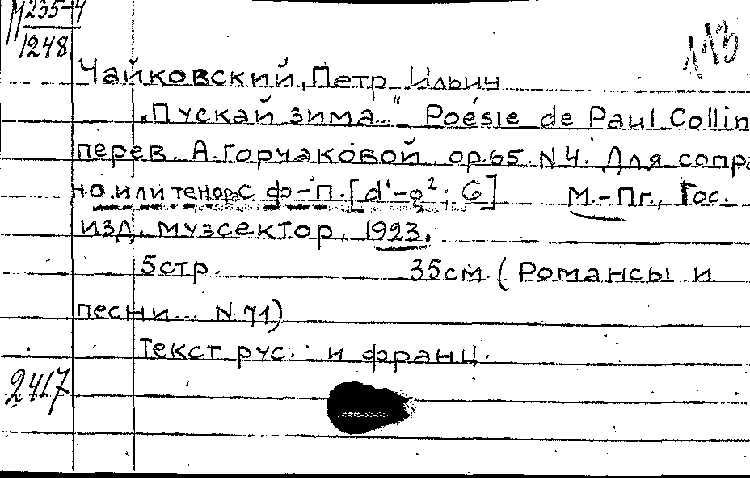 М235-4
1248
МЗ
Чайковский, Петр Ильич
„Пускай зима..." Poésie de Paul Collin
перев. А. Горчаковой ор.65. N4. Для сопра
но или тенора с ф-п. [d¹-g²; G] М.-Пг., Гос.
изд. музсектор, 1923.
5стр. 35см. (Романсы и
песни... N.71)
Текст рус. и франц.
2417